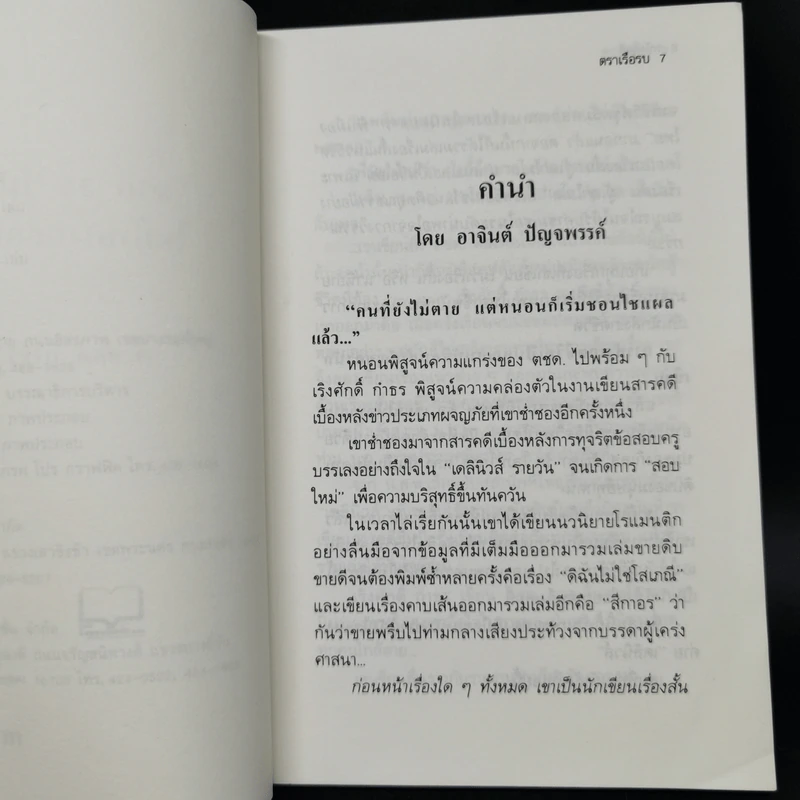 ตราเรือรบ 7
คำนำ
โดย อาจินต์ ปัญจพรรค์
“คนที่ยังไม่ตาย แต่หนอนก็เริ่มชอนไชแผล
แล้ว...”
หนอนพิสูจน์ความแกร่งของ ตชด. ไปพร้อม ๆ กับ
เริงศักดิ์ กำธร พิสูจน์ความคล่องตัวในงานเขียนสารคดี
เบื้องหลังข่าวประเภทผจญภัยที่เขาช่ำชองอีกครั้งหนึ่ง
เขาช่ำชองมาจากสารคดีเบื้องหลังการทุจริตข้อสอบครู
บรรเลงอย่างถึงใจใน “เดลินิวส์ รายวัน” จนเกิดการ “สอบ
ใหม่” เพื่อความบริสุทธิ์ขึ้นทันควัน
ในเวลาไล่เรี่ยกันนั้นเขาได้เขียนนวนิยายโรแมนติก
อย่างลื่นมือจากข้อมูลที่มีเต็มมือออกมารวมเล่มขายดิบ
ขายดีจนต้องพิมพ์ซ้ำหลายครั้งคือเรื่อง “ดิฉันไม่ใช่โสเภณี”
และเขียนเรื่องคาบเส้นออกมารวมเล่มอีกคือ “สีกาอร” ว่า
กันว่าขายพรืบไปท่ามกลางเสียงประท้วงจากบรรดาผู้เคร่ง
ศาสนา...
ก่อนหน้าเรื่องใด ๆ ทั้งหมด เขาเป็นนักเขียนเรื่องสั้น